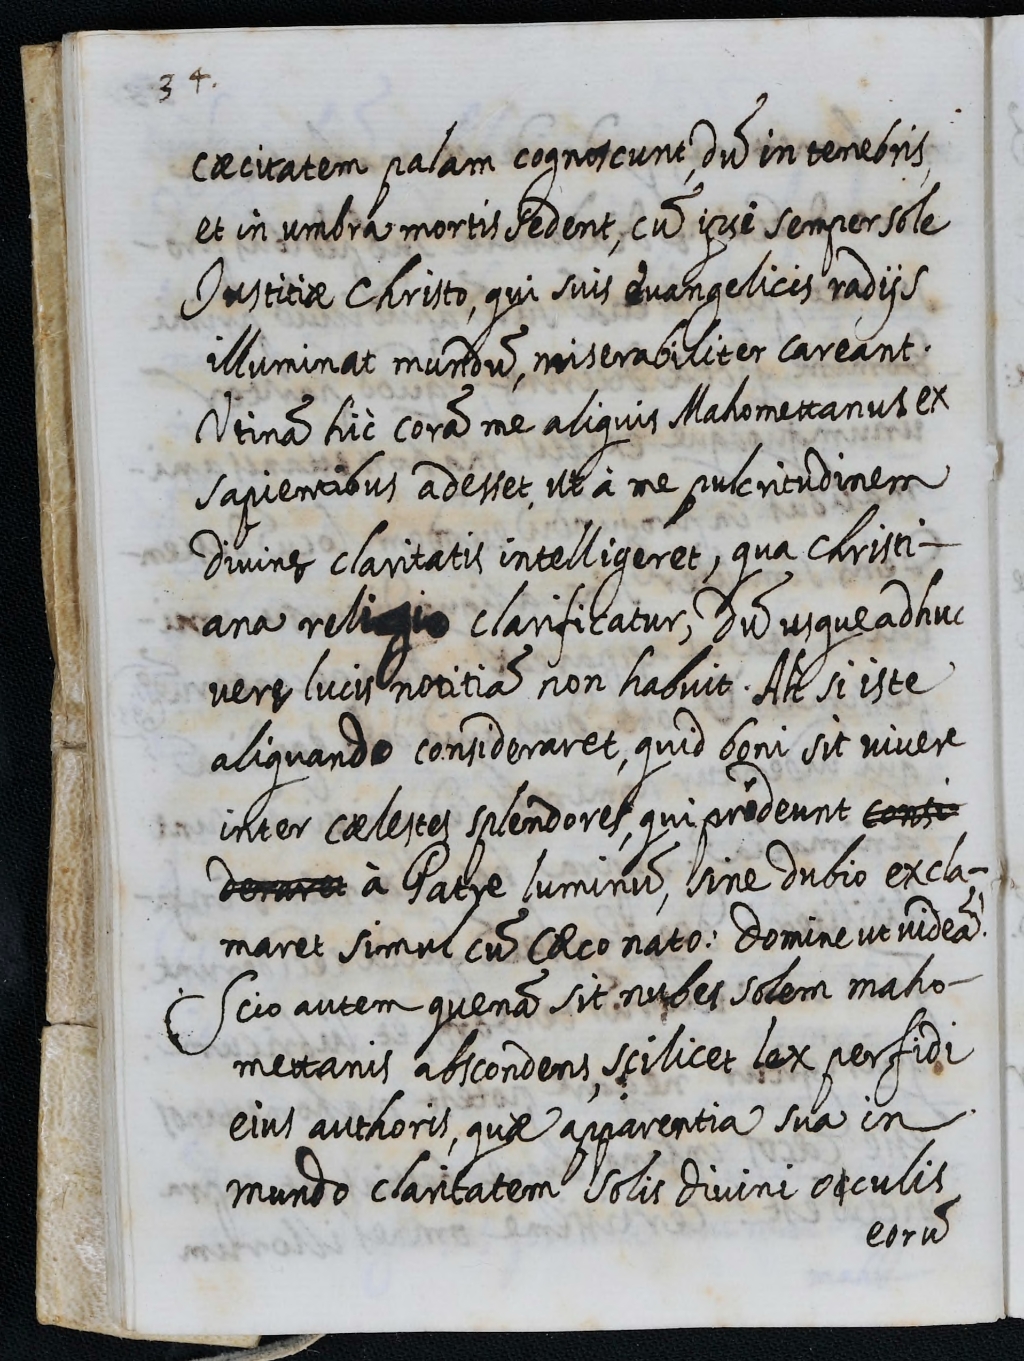 34.
cæcitatem palam cognoscunt, dũ in tenebris,
et in umbra mortis sedent, cũ ipsi semper sole
Justitiæ Christo, qui suis evangelicis radijs
illuminat mundũ, miserabiliter careant.
Vtinã hìc corã me aliquis Mahomettanus ex
sapientibus adesset, ut à me pulcritudinem
divinę claritatis intelligeret, qua Christi-
ana religio clarificatur, dũ usque adhuc
verę lucis notitiã non habuit. At si iste
aliquando consideraret, quid boni sit vivere
inter cælestes splendores, qui prodeunt consi-
deraret à Patre luminũ, sine dubio excla-
maret simul cũ Cæco nato: Domine ut videã!
Scio autem quenã sit nubes solem maho-
mettanis abscondens, scilicet lex perfidi
eius authoris, quæ apparentia sua in
mundo claritatem solis divini occulis
eorũ